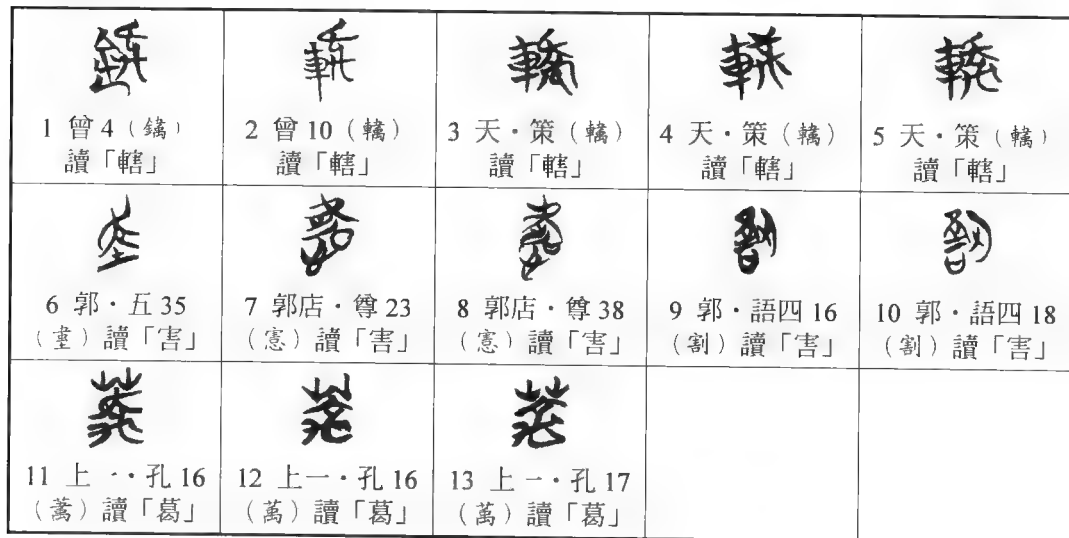 1 曾 4（）
讀「轄」
2 曾 10（）
讀「轄」
3 天・策（）
讀「轄」
4 天・策（）
讀「轄」
5 天・策（）
讀「轄」
6 郭・五 35
（）讀「害」
7 郭店・尊 23
（）讀「害」
8 郭店・尊 38
（）讀「害」
9 郭・語四 16
（割）讀「害」
10 郭・語四 18
（割）讀「害」
11 上一・孔 16
（）讀「葛」
12 上一・孔 16
（萬）讀「葛」
13 上一・孔 17
（萬）讀「葛」